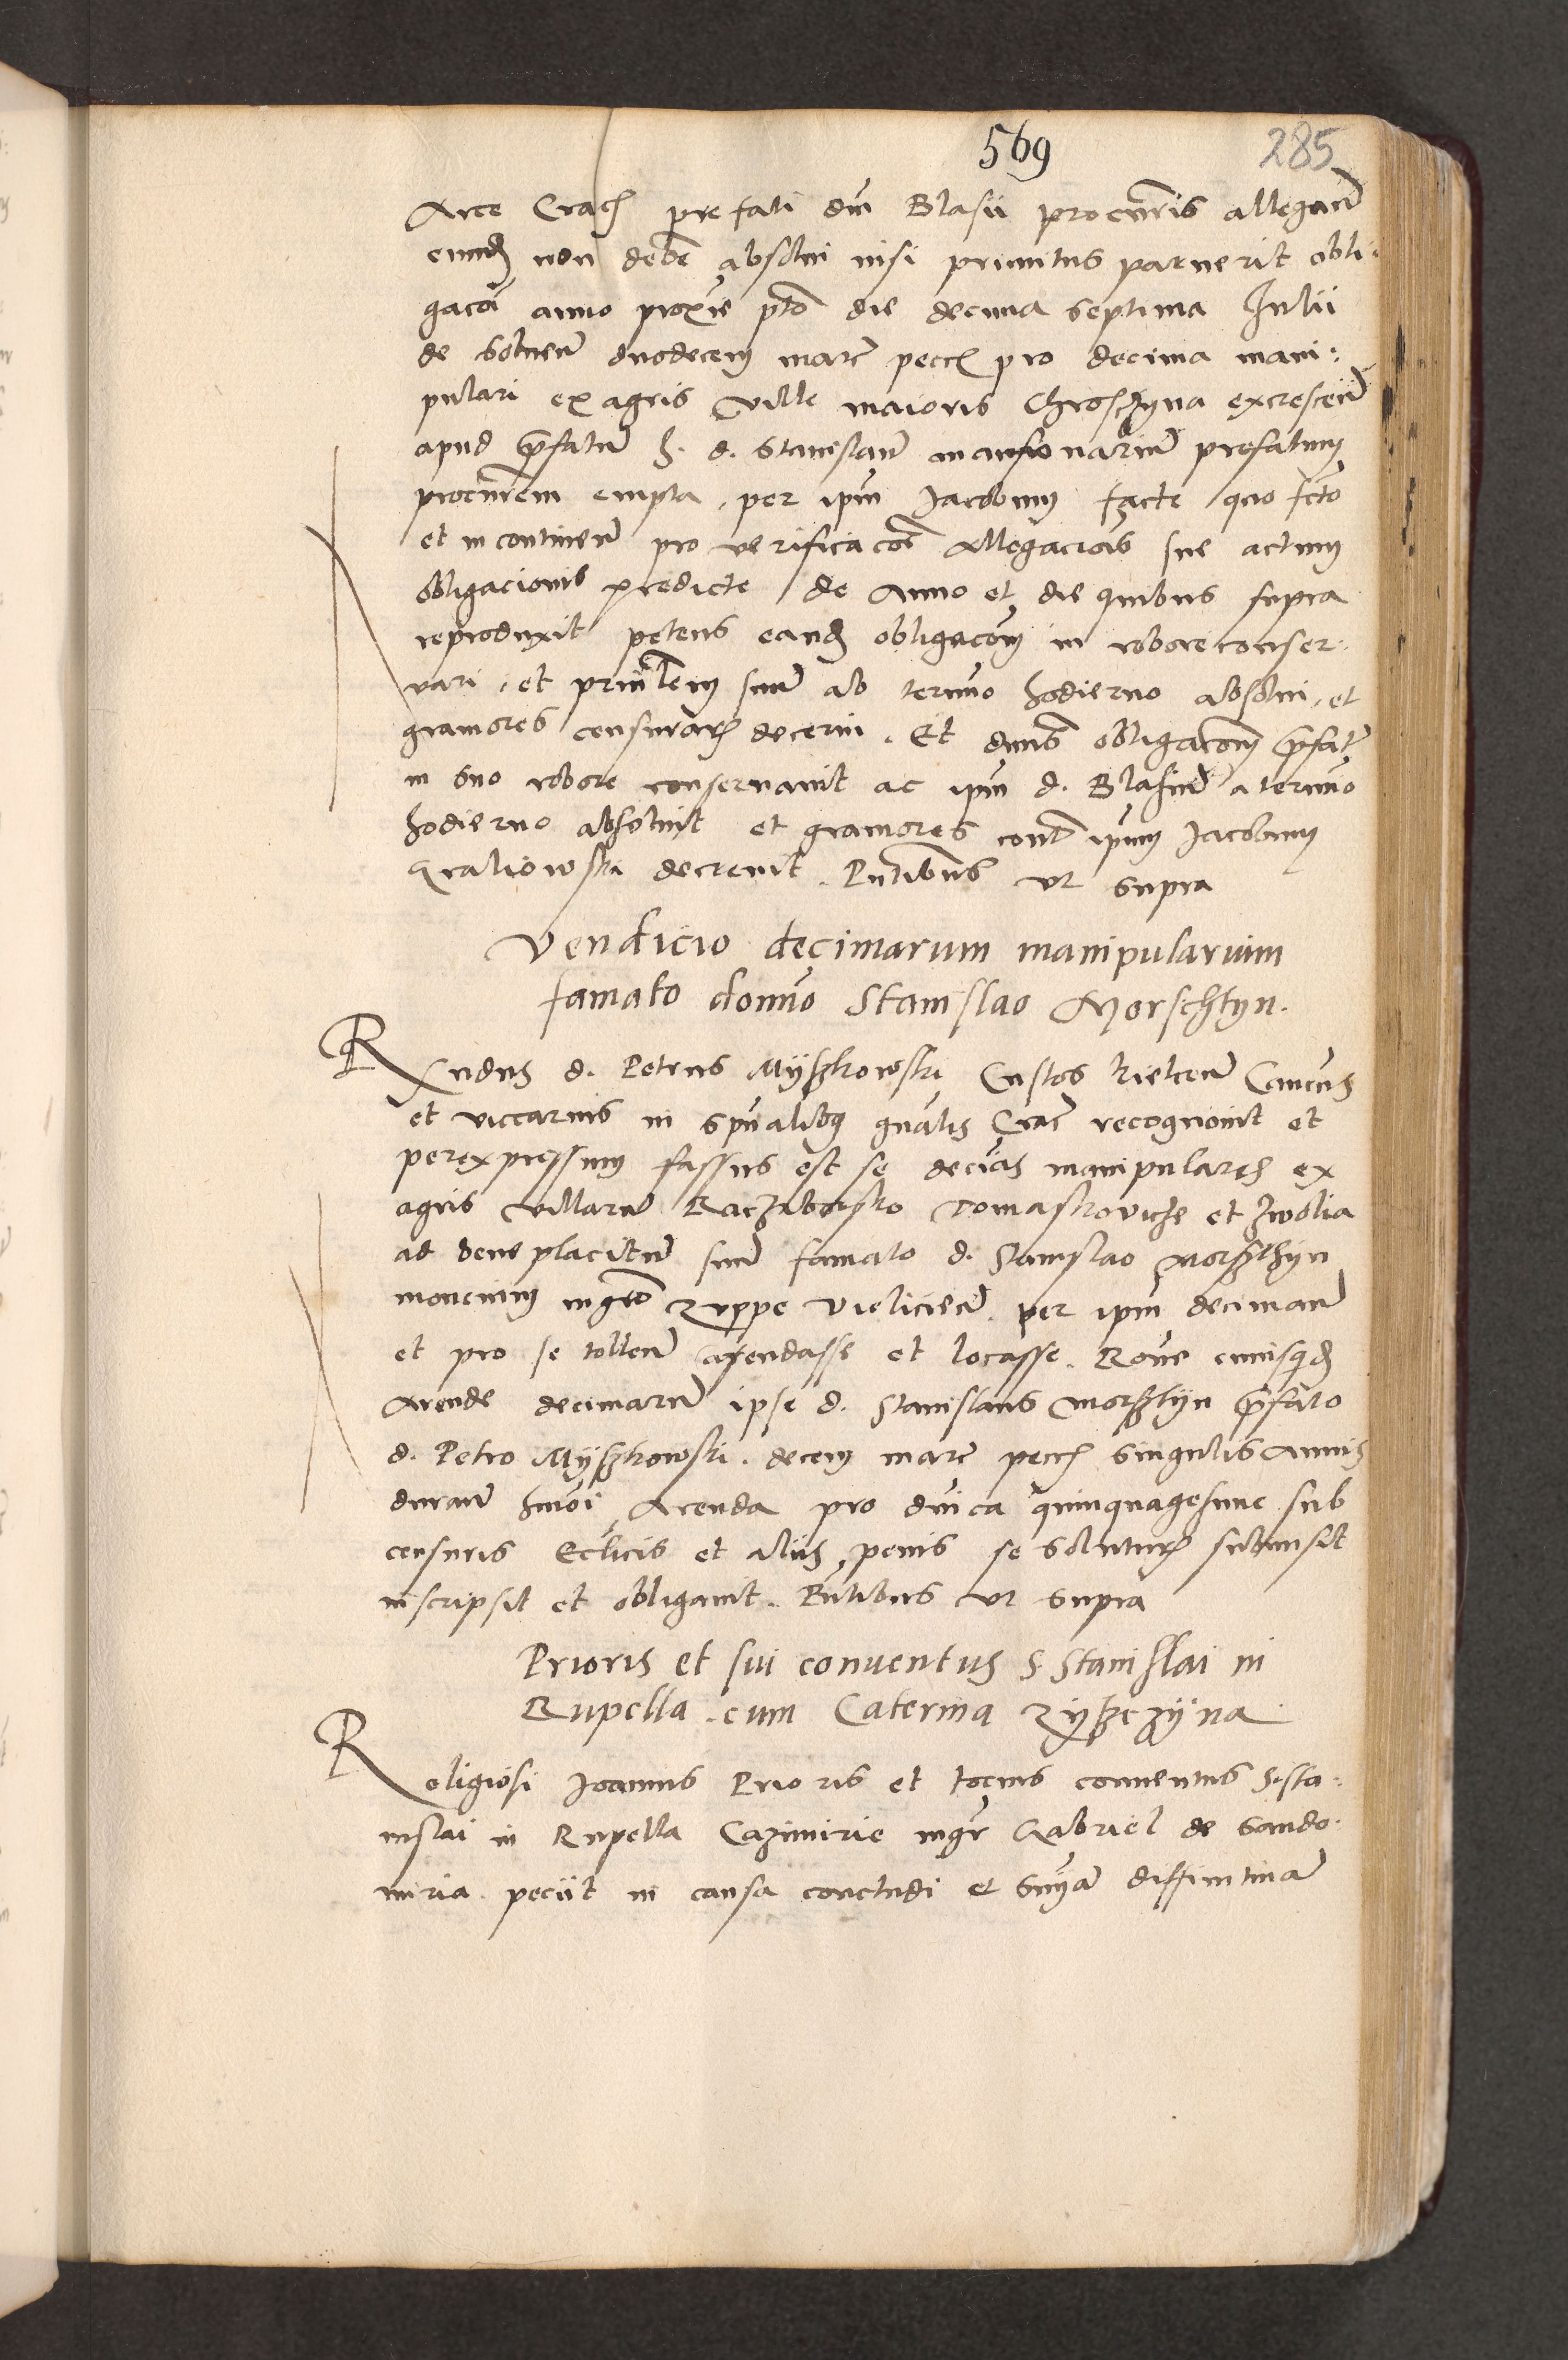 569 285
Arce Crac prefati dni Blasii procuratoris allegan
eund non debe absolvi nisi primitus paruerit obli-
gacoi anno proxie pto die decima septima Julii
de solven duodecem marc pecc pro decima mani:
pulari ex agris ville maioris Chroszyna excrescen
apud prefatum h. d. Stanislaum mansionarium prefatum
procurem empta, per ipm Jacobum facte quo fcto
et incontinen pro verificacoe allegacois sue actum
obligacionis predicte de Anno et die quibus supra
reproduxit petens eand obligacom in robore conser-
vari, et prinlem suum ab termo hodierno absolvi, et
gramores censuras decerni. Et dnus obligacom prefatam
in suo robore conservavit ac ipm d. Blasium a termo
hodierno absolvit et gramores cont ipum Jacobum
Graliowski decrevit. Pntibus ut supra
Vendicio decimarum manipularium
famato domno Stanislao Morschtyn.
Rvndus d. Petrus Mÿszkowski Custos Kielcen Canocus
et viccarius in spualibus gnalis Crac recognovit et
per expressum fassus est se decias manipulares ex
agris villarum Racziborsko Tomaskovicze et Zwolia
ad bene placitum suum famato d. Stanislao Morszthyn
moncium mgro Zuppe Vieliciens. per ipm deciman
et pro se tollen arendasse et locasse. Rone cuiusquid
Arende decimarum ipse d. Stanislaus Morsztyn prefato
d. Petro Mÿszkowski. decem marc pecc singulis Annis
duran hmoi Arenda pro dnica quinquagesime sub
censuris Ecclicis et aliis penis se soluturum submisit
inscripsit et obligavit. Pntibus ut supra
Prioris et sui conventus S. Stanislai in
Rupella cum Caterina Zyszczÿna
Religiosi Joannis Prioris et tocius conventus S. Sta-
nislai in Rupella Cazimirie mgr Gabriel de Sando-
miria. peciit in causa concludi et snyam diffinitivam